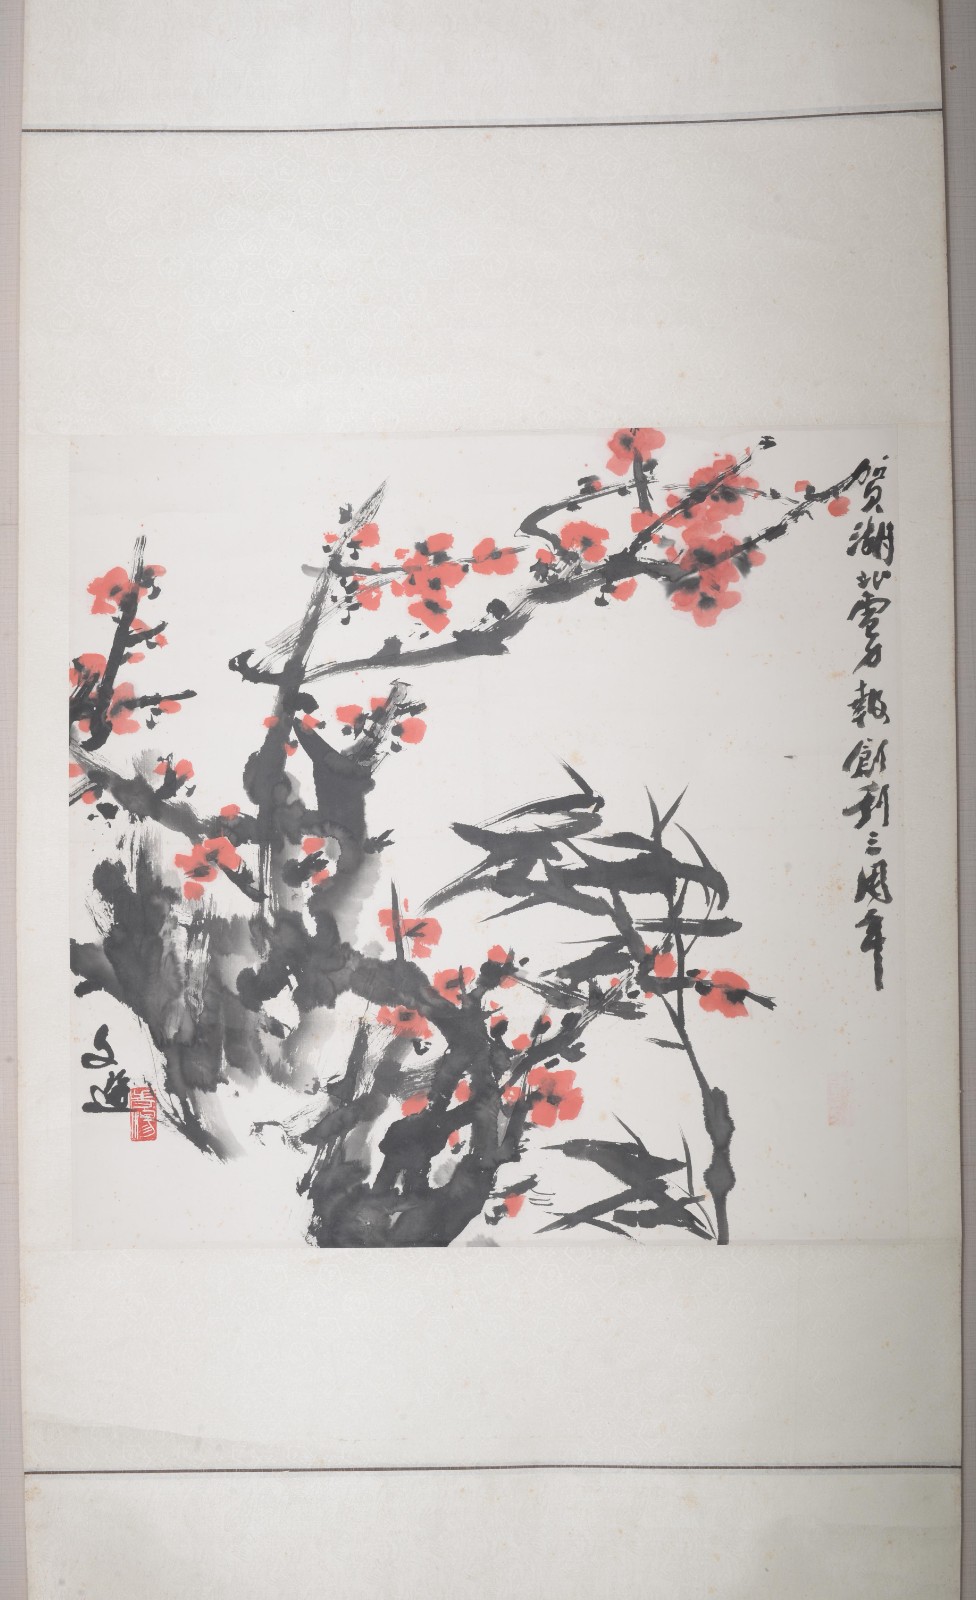 贺湖北电力报创刊三周年
文